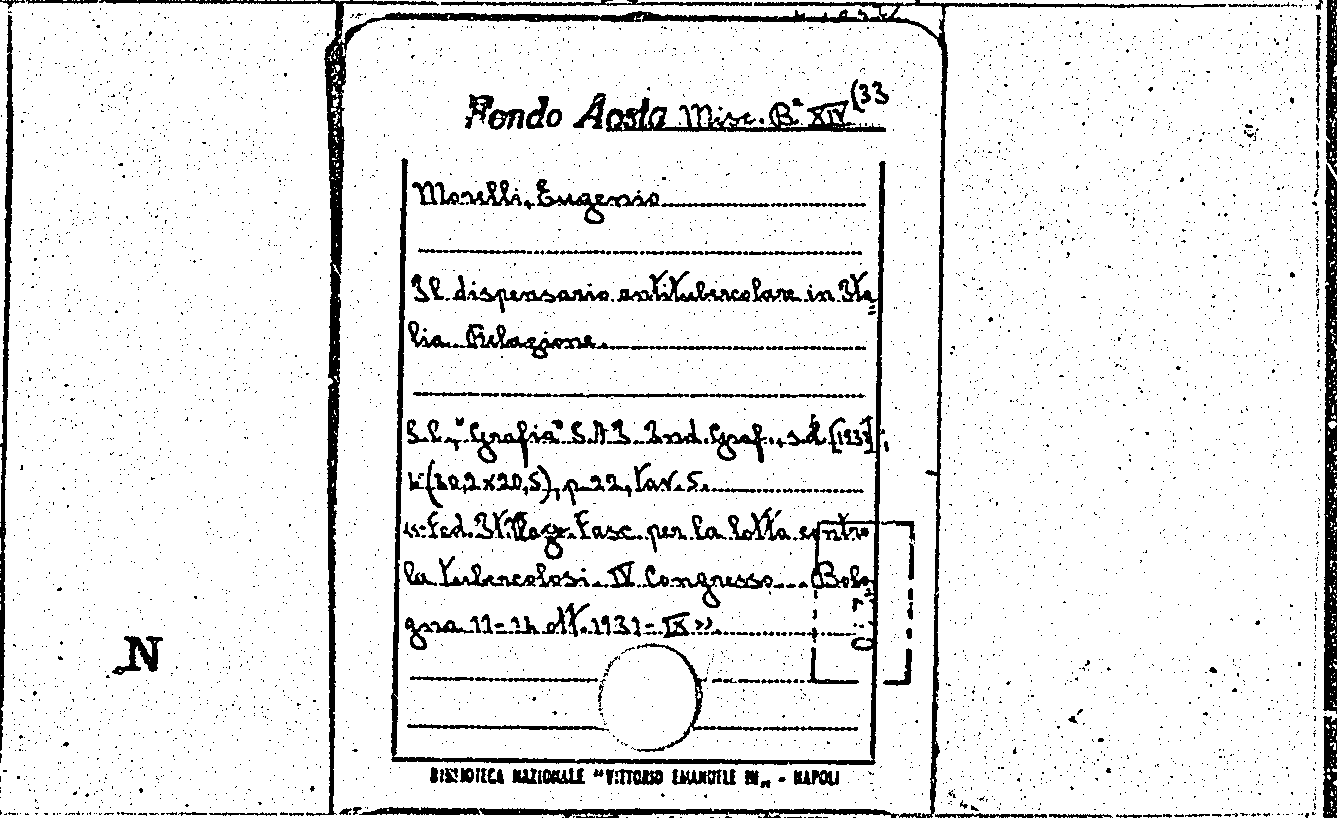 Fondo Aosta Misc. B.ª XIV (33
Morelli, Eugenio
Il dispensario antitubercolare in Ita=
lia. Relazione.
S.l., "Grafia" S.A.I. Ind. Graf., s.d. [1931];
4° (30,2x20,5), p. 22, tav. 5.
Fed. It. Naz. Fasc. per la lotta contro
la tubercolosi. IV Congresso... Bolo
gna 11-14 ott. 1931-IX».
N
BIBLIOTECA NAZIONALE "VITTORIO EMANUELE III„ - NAPOLI